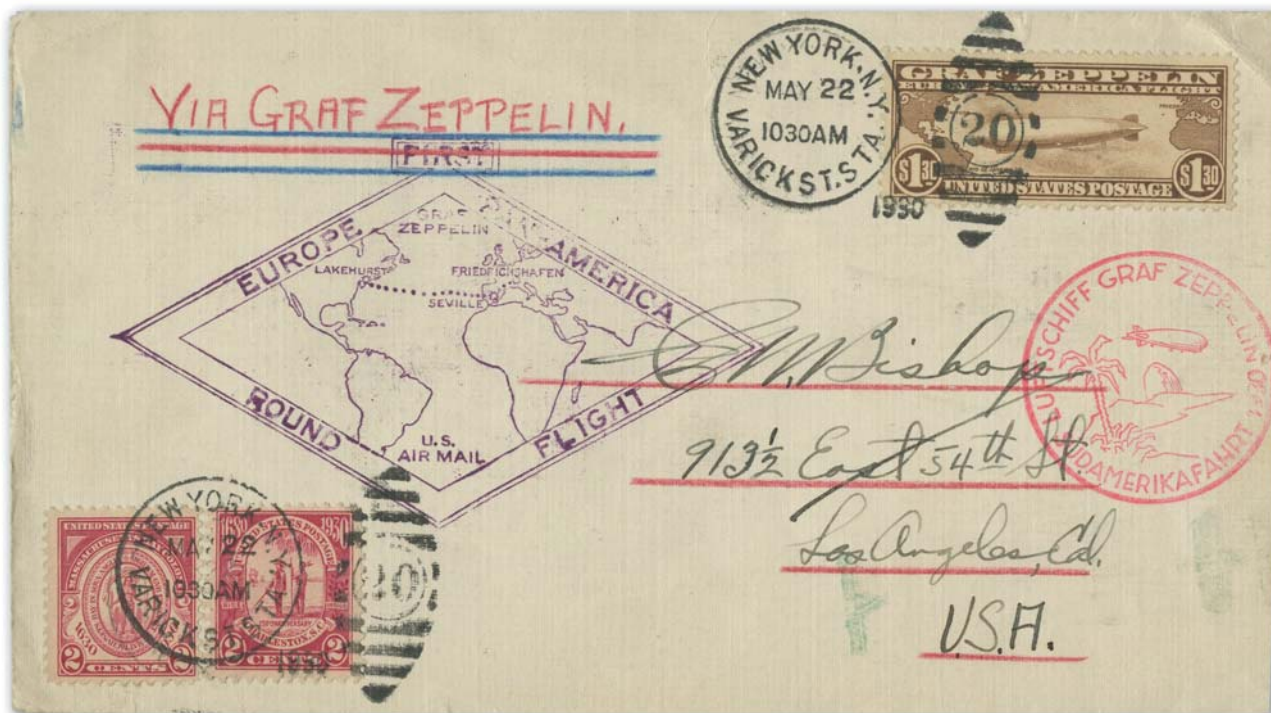 VIA GRAF ZEPPELIN.
NEW YORK, N.Y.
MAY 22
1030AM
VARICK ST. STA.
1930
20
GRAF ZEPPELIN
EUROPE PAN-AMERICA FLIGHT
$1.30
$1.30
UNITED STATES POSTAGE
FIRST
EUROPE PAN-AMERICA
GRAF
ZEPPELIN
LAKEHURST
FRIEDRICHSHAFEN
SEVILLE
ROUND FLIGHT
U.S.
AIR MAIL
LUFTSCHIFF GRAF ZEPPELIN
SÜDAMERIKAFAHRT
C M. Bishop
913½ East 54th St.
Los Angeles, Cal.
U.S.A.
NEW YORK, N.Y.
MAY 22
1030AM
VARICK ST. STA.
20
UNITED STATES POSTAGE
MASSACHUSETTS BAY COLONY
1630
2 CENTS 2
UNITED STATES POSTAGE
1930
CHARLESTON, S.C.
2 CENTS 2